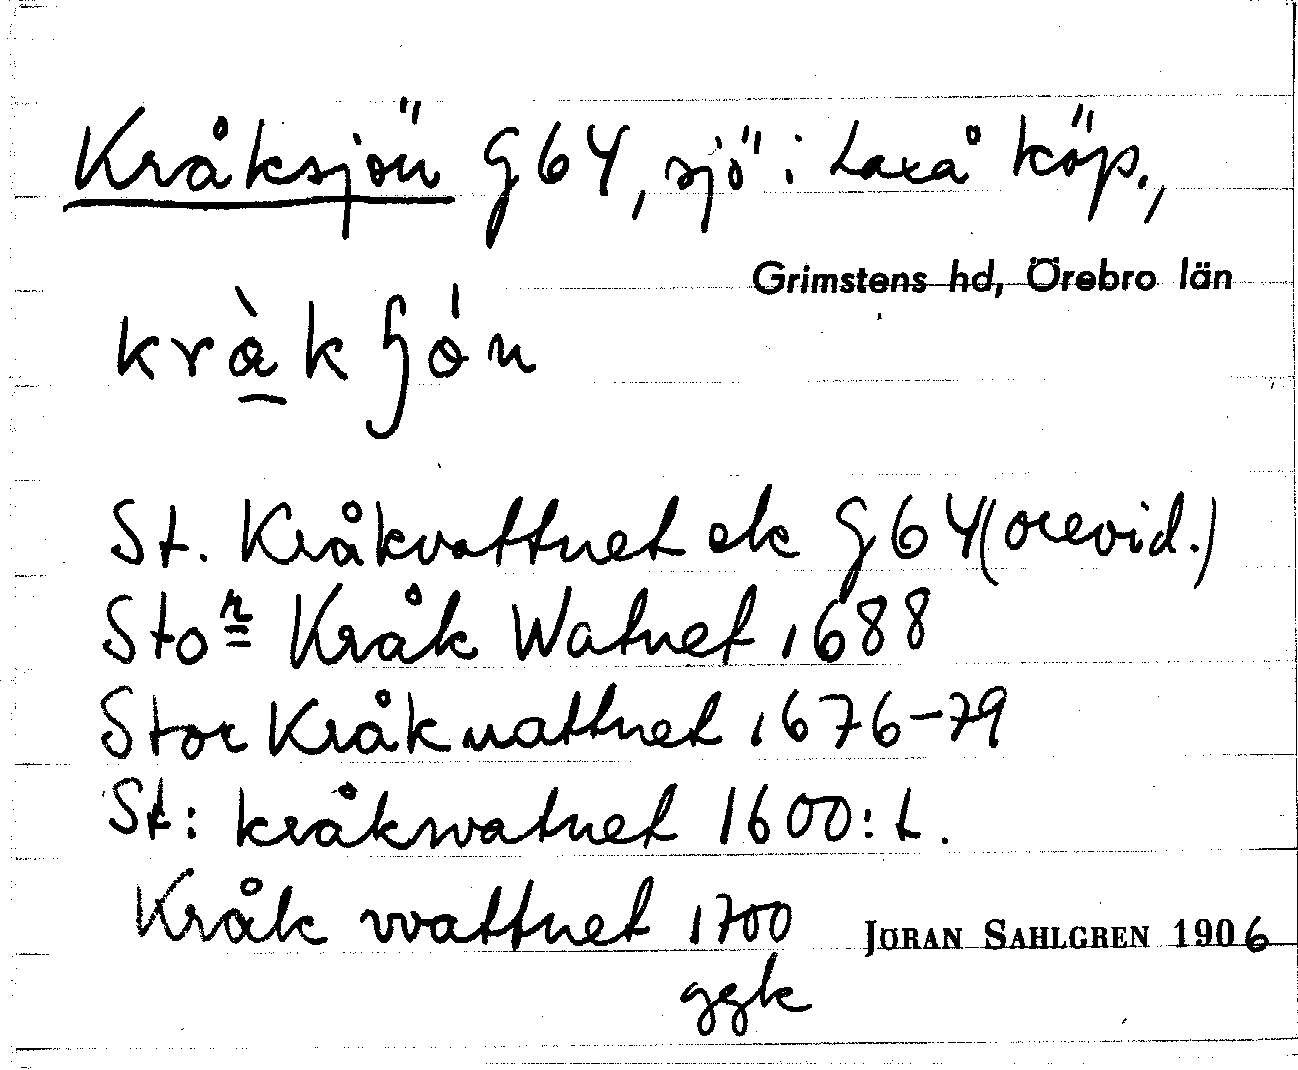 Kråksjön G64, sjö i Laxå köp.,
Grimstens hd, Örebro län
kràkʃón
St. Kråkvattnet ek G64 (orevid.)
Stor Kråk Watnet 1688
Stor Kråkuattnet 1676-79
St: kråkwatnet 1600:t.
Kråk vvattnet 1700
ggk
JÖRAN SAHLGREN 1906